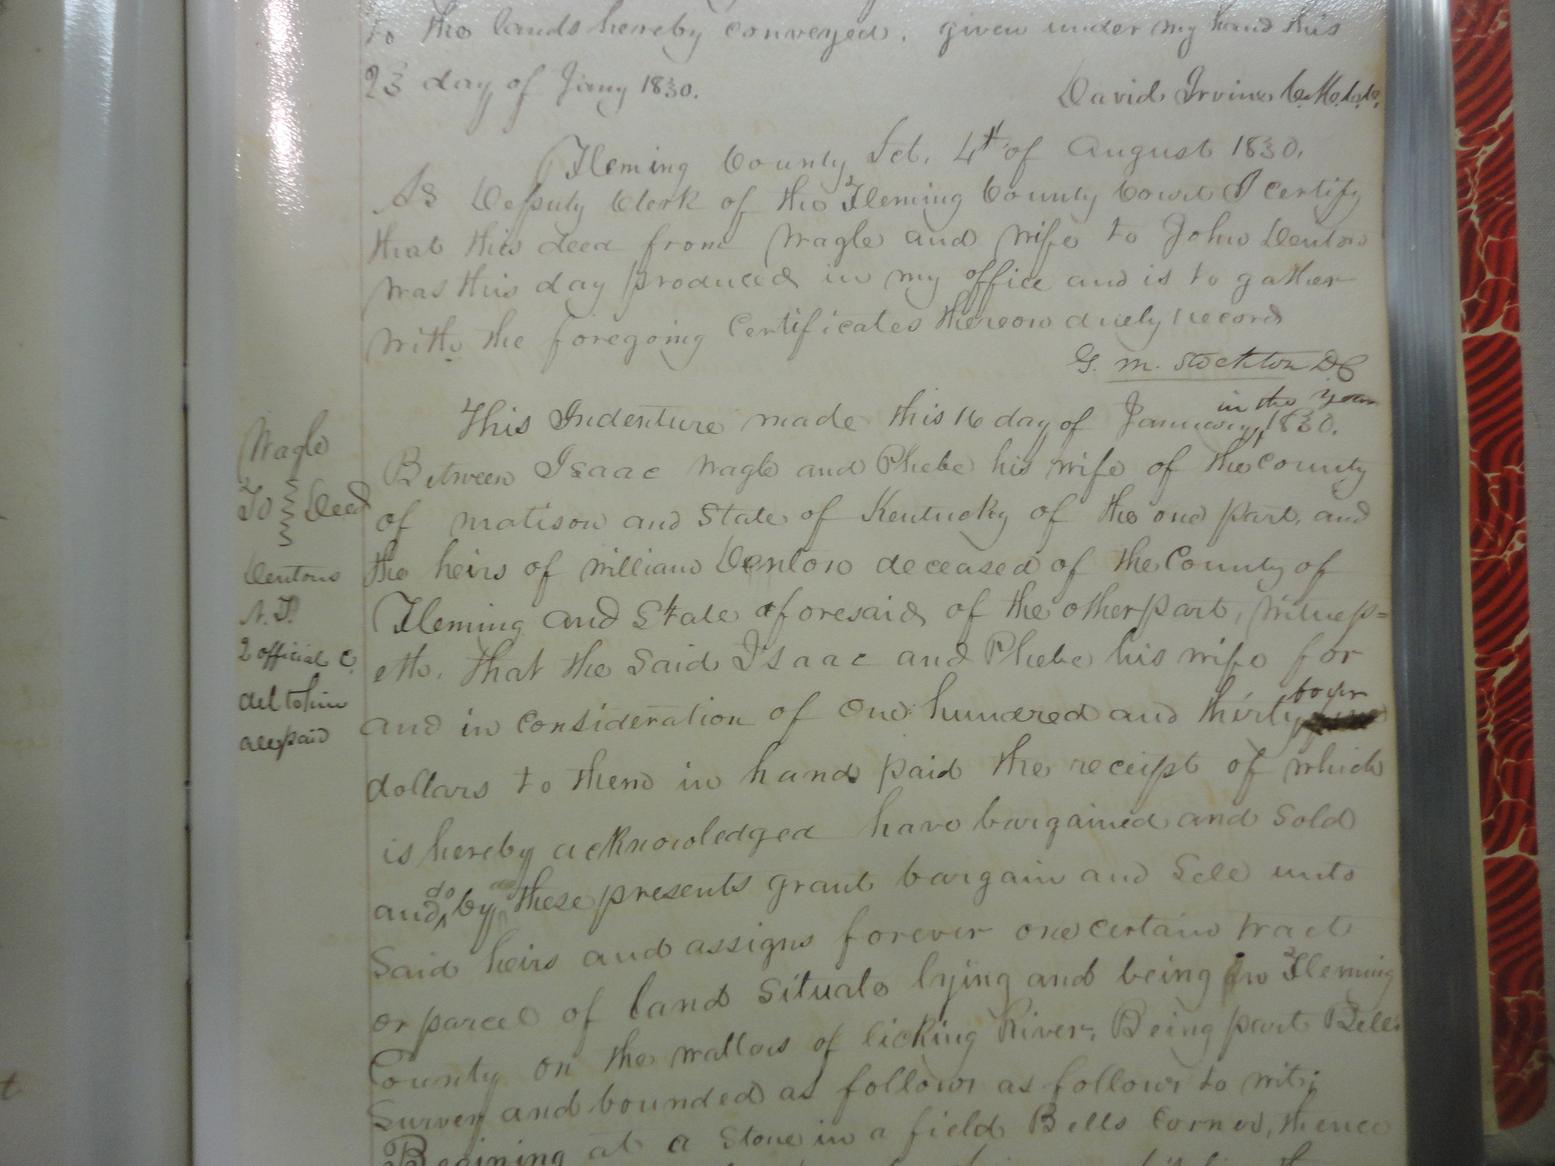 to the lands hereby conveyed. given under my hand this
23 day of Jany 1830.
David Irvine C.M.C.C.
Fleming County Sct. 4th of August 1830.
As Deputy Clerk of the Fleming County Court I certify
that this deed from Nagle and wife to John Denton
was this day produced in my office and is to gather
with the foregoing Certificates thereon duely record
G. M. Stockton DC
This Indenture made this 16 day of January in the year 1830.
Between Isaac Nagle and Phebe his wife of the County
of Matison and State of Kentucky of the one part, and
the heirs of William Denton deceased of the County of
Fleming and State aforesaid of the other part, Witness=
eth. that the Said Isaac and Phebe his wife for
and in Consideration of One hundred and thirty four
dollars to them in hand paid the receipt of which
is hereby acknowledged have bargained and Sold
and do by these presents grant bargain and Sell unto
Said heirs and assigns forever one certain tract
or parcel of land Situate lying and being in Fleming
County on the wattors of licking River, Being part Bells
Survey and bounded as follows as follows to wit;
Begining at a Stone in a field Bells Corner, thence
Nagle
To Deed
Dentons
N. T.
2 official C
del to him
all paid